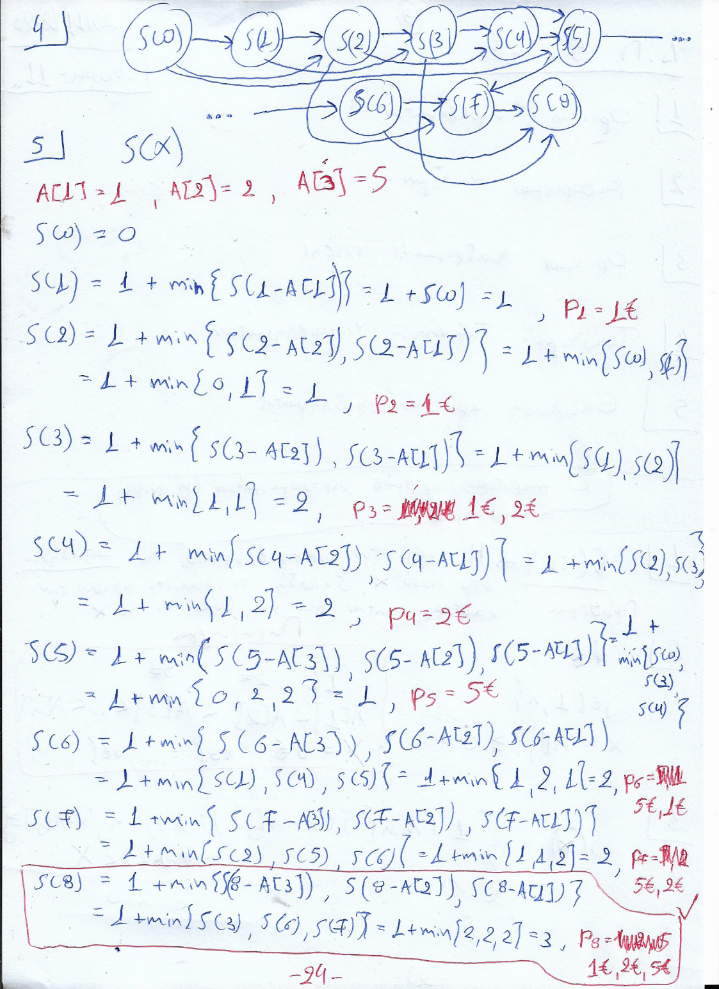 4
S(0) S(1) S(2) S(3) S(4) S(5) ...
... S(6) S(7) S(8)
5 S(x)
A[1] = 1 , A[2] = 2 , A[3] = 5
S(0) = 0
S(1) = 1 + min{ S(1-A[1])} = 1 + S(0) = 1 , P1 = 1€
S(2) = 1 + min{ S(2-A[2]), S(2-A[1]) } = 1 + min{S(0), S(1)}
= 1 + min{0, 1} = 1 , P2 = 1€
S(3) = 1 + min{ S(3-A[2]), S(3-A[1])} = 1 + min{S(1), S(2)}
= 1 + min{1, 1} = 2, P3 = 1€, 2€
S(4) = 1 + min{ S(4-A[2]), S(4-A[1]) } = 1 + min{S(2), S(3)}
= 1 + min{1, 2} = 2 , P4 = 2€
S(5) = 1 + min{ S(5-A[3]), S(5-A[2]), S(5-A[1]) } = 1 +
min{S(0),
S(3),
S(4) }
= 1 + min{0, 2, 2} = 1, P5 = 5€
S(6) = 1 + min{ S(6-A[3]), S(6-A[2]), S(6-A[1])}
= 1 + min{S(1), S(4), S(5)} = 1 + min{1, 2, 1} = 2, P6 =
5€, 1€
S(7) = 1 + min{ S(7-A[3]), S(7-A[2]), S(7-A[1])}
= 1 + min{S(2), S(5), S(6)} = 1 + min{1, 1, 2} = 2, P7 =
5€, 2€
S(8) = 1 + min{S(8-A[3]), S(8-A[2]), S(8-A[1])}
= 1 + min{S(3), S(6), S(7)} = 1 + min{2, 2, 2} = 3 , P8 =
1€, 2€, 5€
-24-